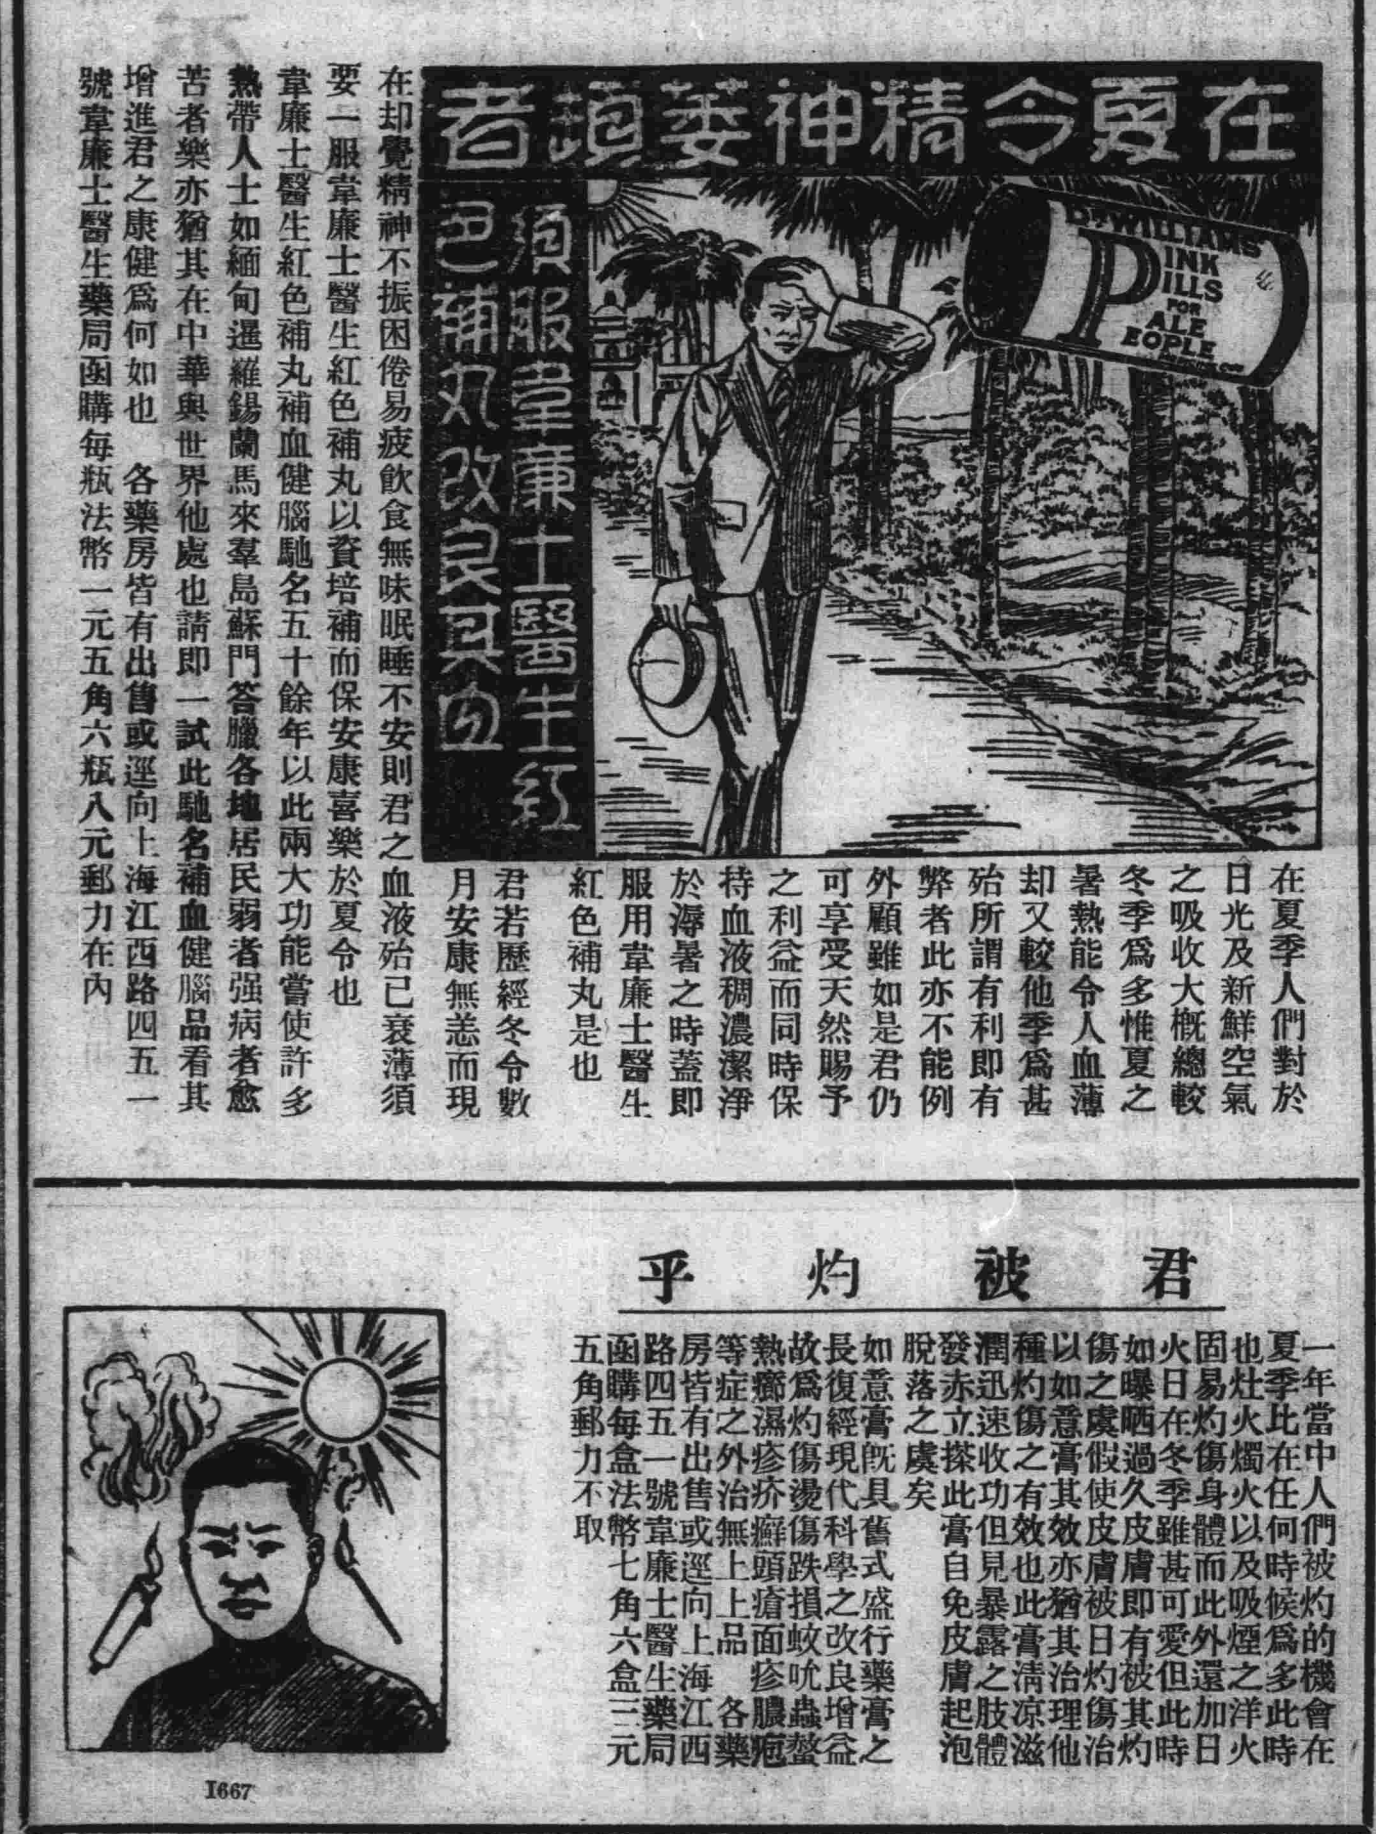 在夏令精神萎頓者
須服韋廉士醫生紅
色補丸改良其血
DR WILLIAMS'
PINK
PILLS
FOR
PALE
PEOPLE
在夏季人們對於
日光及新鮮空氣
之吸收大概總較
冬季爲多惟夏之
暑熱能令人血薄
却又較他季爲甚
殆所謂有利即有
弊者此亦不能例
外顧雖如是君仍
可享受天然賜予
之利益而同時保
持血液稠濃潔淨
於溽暑之時蓋即
服用韋廉士醫生
紅色補丸是也
君若歷經冬令數
月安康無恙而現
在却覺精神不振困倦易疲飲食無味眠睡不安則君之血液殆已衰薄須
要一服韋廉士醫生紅色補丸以資培補而保安康喜樂於夏令也
韋廉士醫生紅色補丸補血健腦馳名五十餘年以此兩大功能嘗使許多
熱帶人士如緬甸暹羅錫蘭馬來羣島蘇門答臘各地居民弱者强病者愈
苦者樂亦猶其在中華與世界他處也請即一試此馳名補血健腦品看其
增進君之康健爲何如也　各藥房皆有出售或逕向上海江西路四五一
號韋廉士醫生藥局函購每瓶法幣一元五角六瓶八元郵力在內
君被灼乎
一年當中人們被灼的機會在
夏季比在任何時候爲多此時
也灶火燭火以及吸煙之洋火
固易灼傷身體而此外還加日
火日在冬季雖甚可愛但此時
如曝晒過久皮膚即有被其灼
傷之虞假使皮膚被日灼傷治
以如意膏其效亦猶其治理他
種灼傷之有效也此膏淸凉滋
潤迅速收功但見暴露之肢體
發赤立搽此膏自免皮膚起泡
脫落之虞矣
如意膏旣具舊式盛行藥膏之
長復經現代科學之改良增益
故爲灼傷燙傷跌損蚊吮蟲螫
熱癤濕疹疥癬頭瘡面疹膿疱
等症之外治無上上品　各藥
房皆有出售或逕向上海江西
路四五一號韋廉士醫生藥局
函購每盒法幣七角六盒三元
五角郵力不取
1667